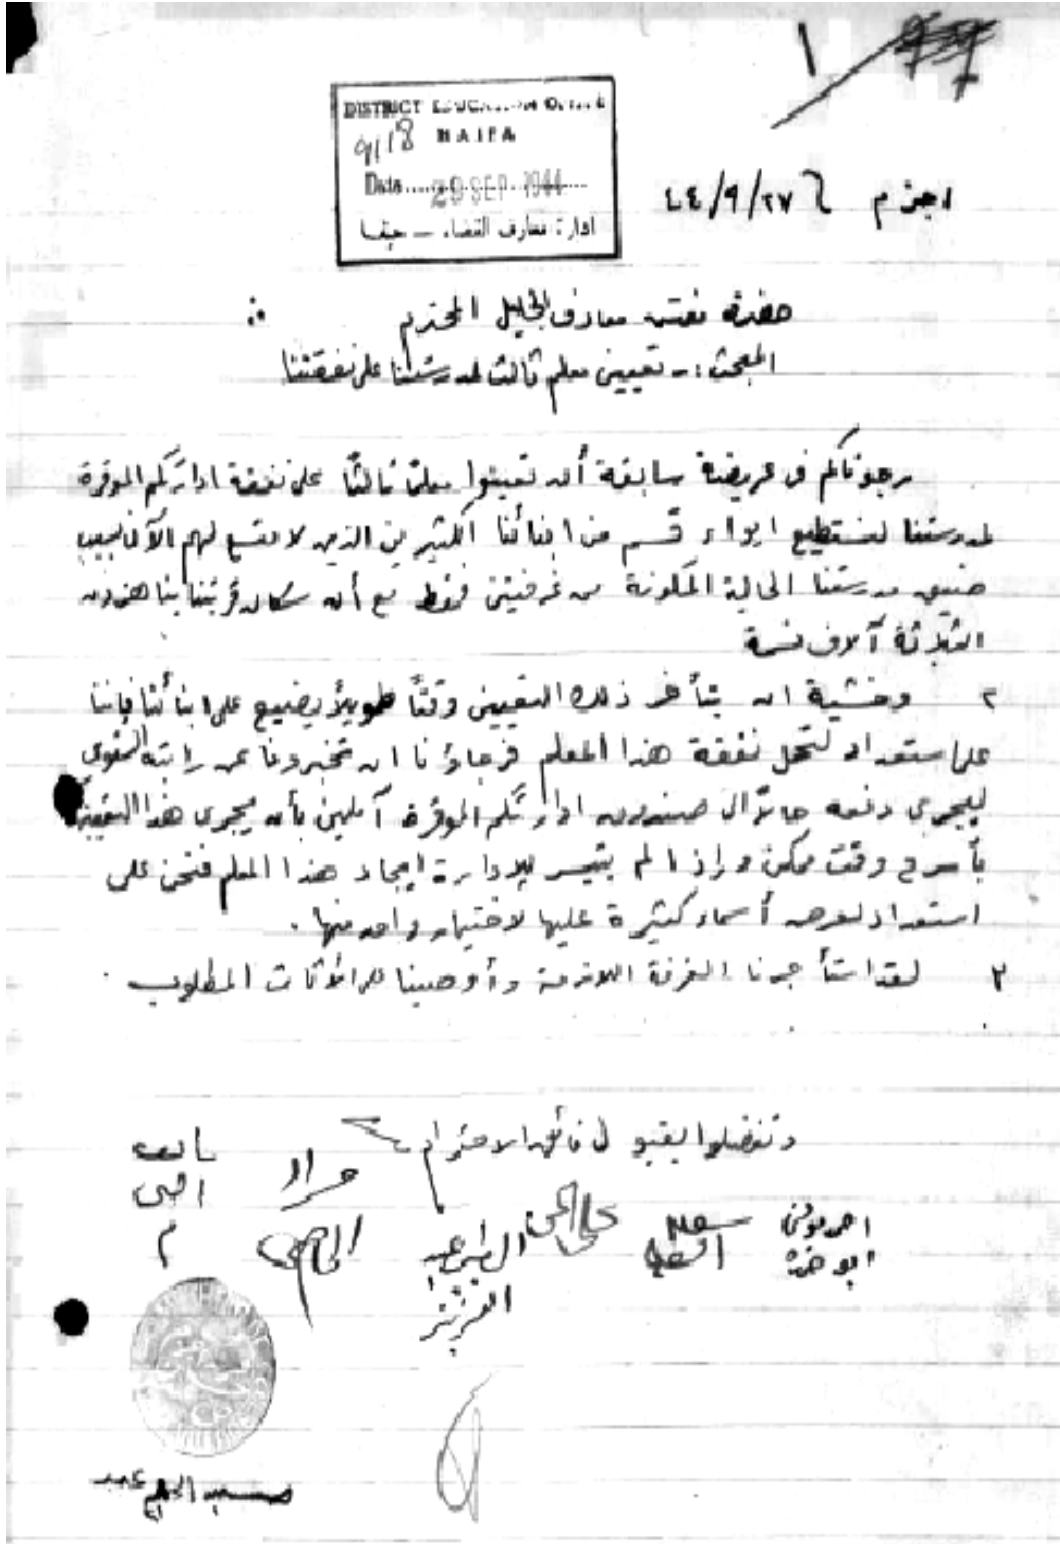 DISTRICT EDUCATION OFFICE
HAIFA
9118
Date 29 SEP 1944
ادارة معارف القضاء — حيفا
اجزم في ٤٤/٩/٢٧
حضرة مفتش معارف الجليل المحترم
المبحث :ـ تعيين معلم ثالث لمدرستنا على نفقتنا
رجوناكم في عريضة سابقة أن تعينوا معلمًا ثالثًا على نفقة ادارتكم الموقرة
لمدرستنا لنستطيع ايواء قسم من ابنائنا الكثيرين الذين لا متسع لهم الآن بسبب
ضيق مدرستنا الحالية المكونة من غرفتين فقط مع أن سكان قريتنا يناهزون
الثلاثة آلاف نسمة
٢ وخشية ان يتأخر ذلك التعيين وقتًا طويلاً يضيع على ابنائنا فإننا
على استعداد لتحمل نفقة هذا المعلم فرجاؤنا ان تخبرونا عن راتبه السنوي
ليجري دفعه حالاً الى صندوق ادارتكم الموقرة آملين بأن يجري هذا التعيين
بأسرع وقت ممكن وإذا لم يتيسر للإدارة ايجاد هذا المعلم فنحن على
استعداد لعرض أسماء كثيرة عليها لاختيار واحد منها .
٣ لقد استأجرنا الغرفة اللازمة وأوصينا على الأثاث المطلوب .
وتفضلوا بقبول فائق الاحترام
مراد
الماضي
علي
عبد
العزيز
احمد
ابو